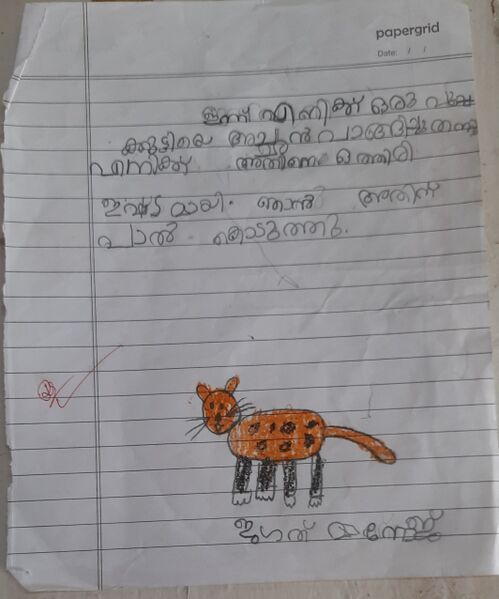 papergrid
Date: / /
ഇന്ന് എനിക്ക് ഒരു പൂച്ച
ക്കുട്ടിയെ അച്ഛൻ വാങ്ങിച്ചു തന്നു
എനിക്ക് അതിനെ ഒത്തിരി
ഇഷ്ടമായി. ഞാൻ അതിന്
പാൽ കൊടുത്തു.
ജഗത് മനോജ്